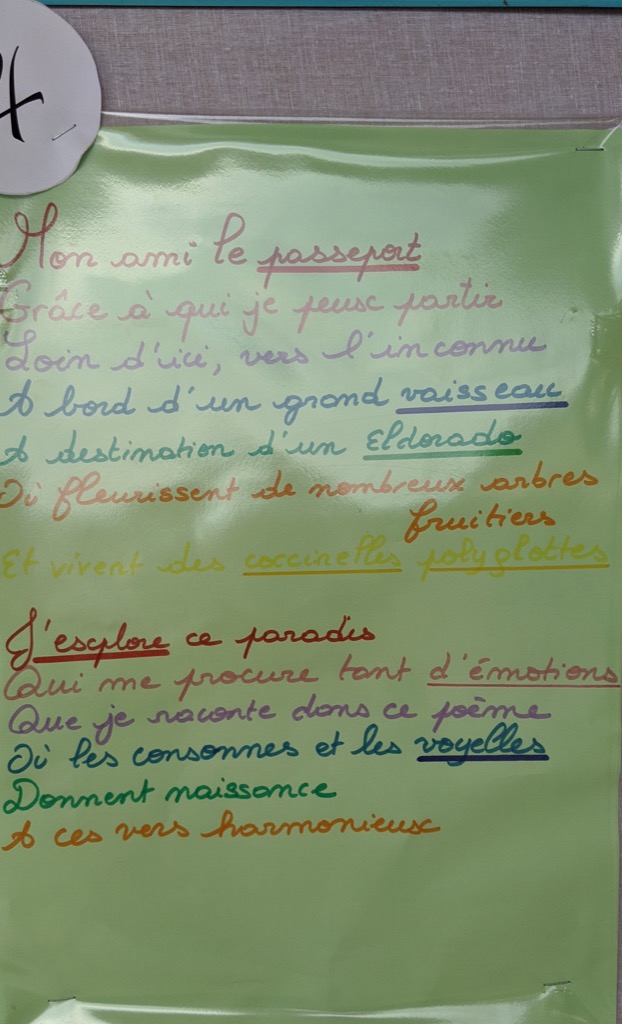 Mon ami le passeport
Grâce à qui je peux partir
Loin d'ici, vers l'inconnu
A bord d'un grand vaisseau
A destination d'un Eldorado
Où fleurissent de nombreux arbres
fruitiers
Et vivent des coccinelles polyglottes
J'explore ce paradis
Qui me procure tant d'émotions
Que je raconte dans ce poème
Où les consonnes et les voyelles
Donnent naissance
A ces vers harmonieux